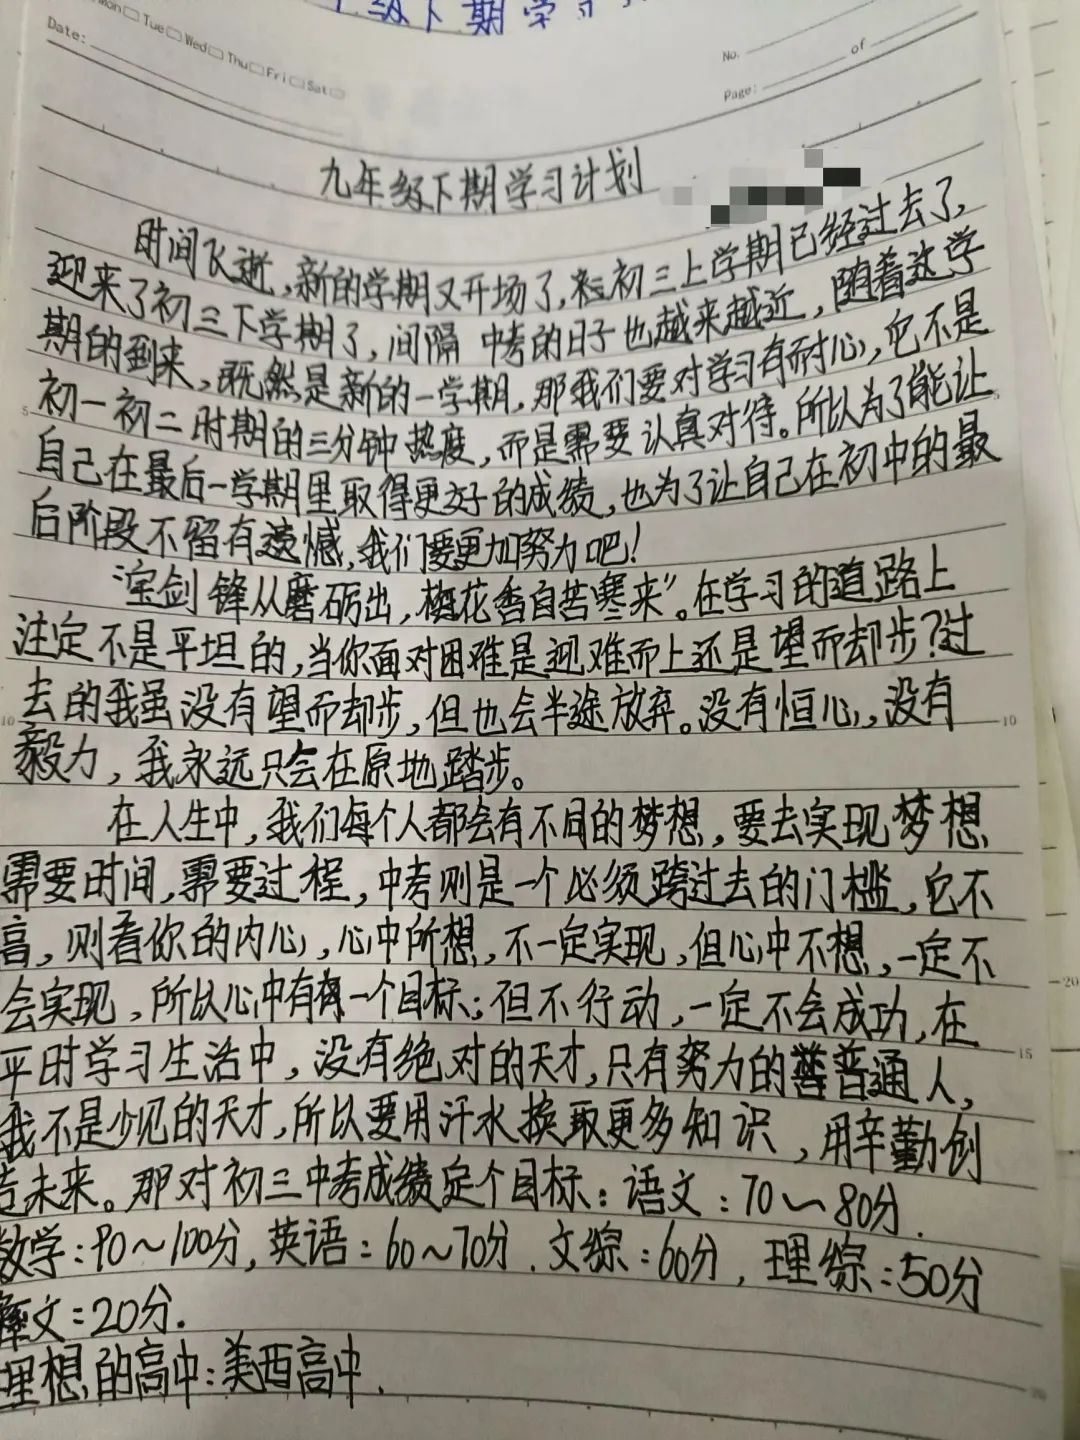 级下期学习
Mon Tue Wed Thu Fri Sat
Date:
No.
Page: of
九年级下期学习计划
时间飞逝,新的学期又开场了,初三上学期已经过去了,
迎来了初三下学期了,间隔中考的日子也越来越近,随着这学
期的到来,既然是新的一学期,那我们要对学习有耐心,它不是
初一初二时期的三分钟热度,而是需要认真对待。所以为了能让
自己在最后一学期里取得更好的成绩,也为了让自己在初中的最
后阶段不留有遗憾,我们要更加努力吧!
“宝剑锋从磨砺出,梅花香自苦寒来”。在学习的道路上
注定不是平坦的,当你面对困难是迎难而上还是望而却步?过
去的我虽没有望而却步,但也会半途放弃。没有恒心,没有
毅力,我永远只会在原地踏步。
在人生中,我们每个人都会有不同的梦想,要去实现梦想
需要时间,需要过程,中考则是一个必须跨过去的门槛,它不
高,则看你的内心,心中所想,不一定实现,但心中不想,一定不
会实现,所以心中有一个目标;但不行动,一定不会成功,在
平时学习生活中,没有绝对的天才,只有努力的普通人,
我不是少见的天才,所以要用汗水换取更多知识,用辛勤创
造未来。那对初三中考成绩定个目标:语文:70~80分.
数学:90~100分,英语:60~70分.文综:60分,理综:50分
20分.
理想的高中:美西高中.
5
10
10
15
20